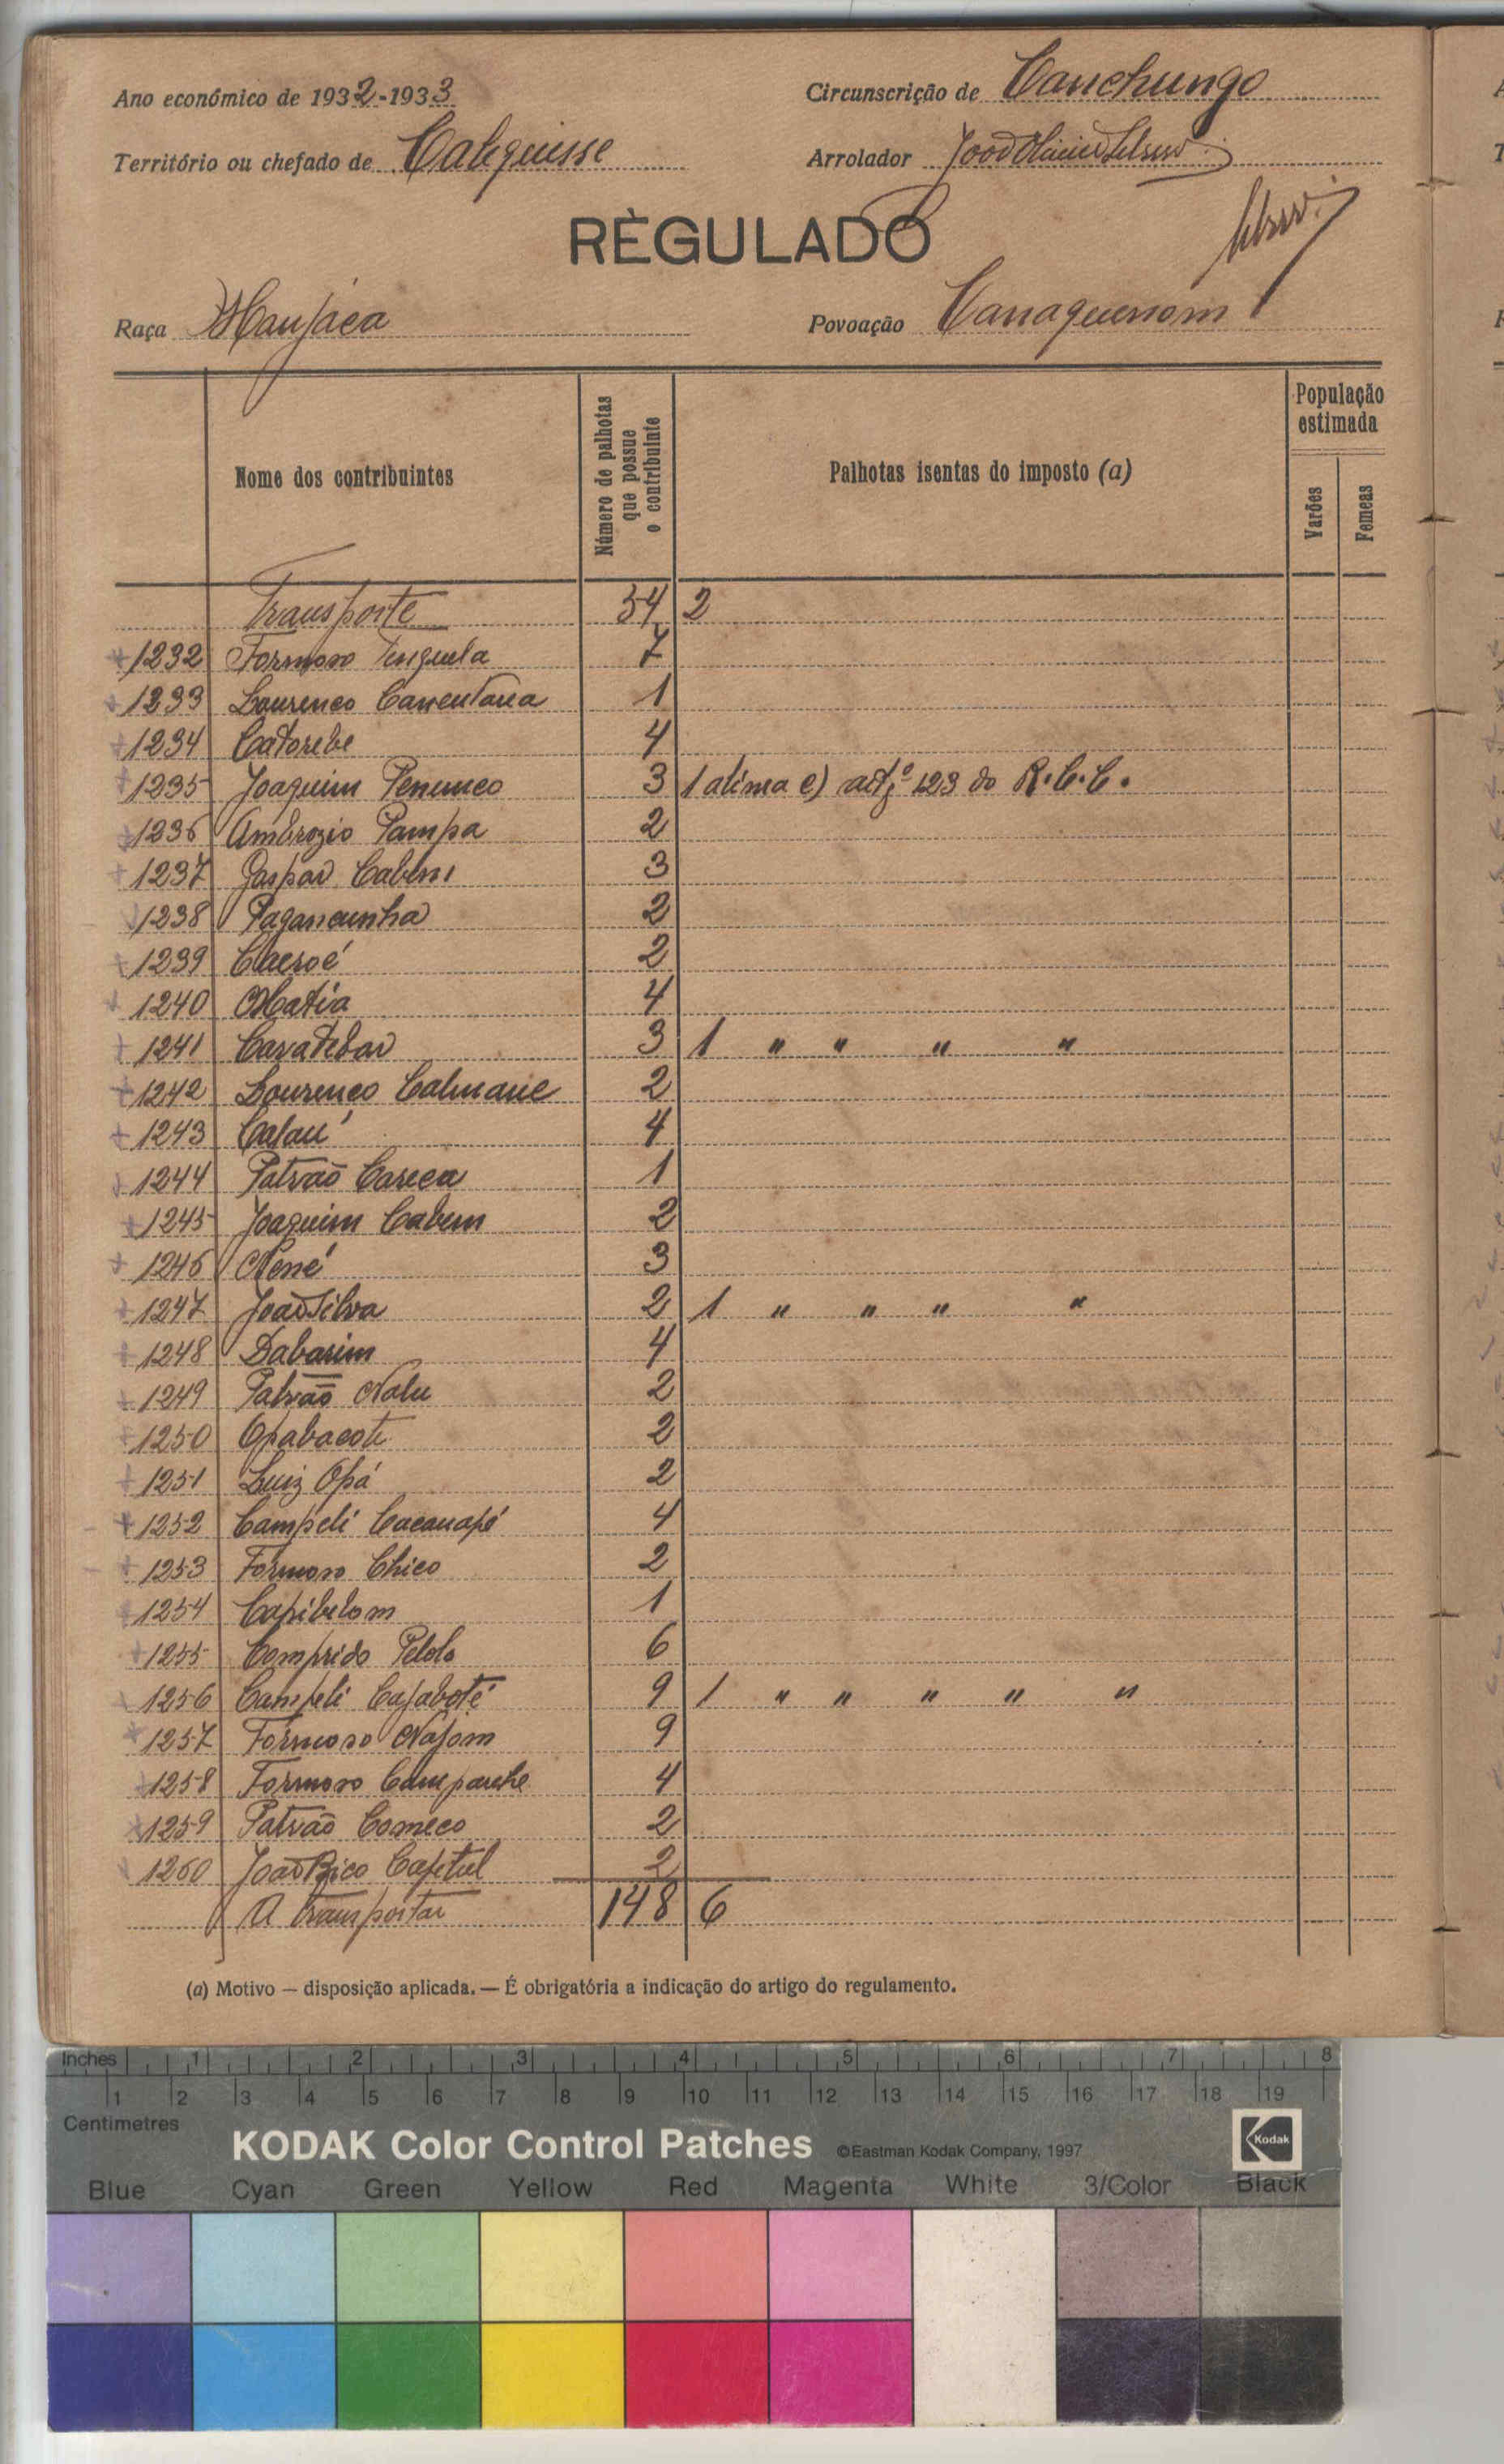 Ano económico de 1932-1933 Circunscrição de Canchungo
Território ou chefado de Calequisse Arrolador João
RÈGULADO
Raça Manjaca Povoação Canaquenom
Nome dos contribuintes
Número de palhotas que possue o contribuinte
Palhotas isentas do imposto (a)
População estimada
Varões
Femeas
Transporte 54 2
1232 Formoso Tenguela 7
1233 Lourenco 1
1234 Catorebe 4
1235 Joaquim 3 1 alinea e) artº 123 do R.C.C.
1236 Ambrozio Pampa 2
1237 Gaspar 3
1238 Pagancunha 2
1239 Caeroé 2
1240 Matia 4
1241 3 1 " " " "
1242 Lourenço Calmane 2
1243 Calau 4
1244 Patrão Careca 1
1245 Joaquim Cabem 2
1246 Nené 3
1247 João Silva 2 1 " " " "
1248 Dabarim 4
1249 Patrão Nalu 2
1250 Opabacote 2
1251 Luiz Opá 2
1252 Campeli Cacauapé 4
1253 Formoso Chico 2
1254 Capibelom 1
1255 Comprido Pelolo 6
1256 Campeli Cajaboté 9 1 " " " " "
1257 Formoso Najom 9
1258 Formoso 4
1259 Patrão Comeco 2
1260 João Bico 2
A transportar 148 6
(a) Motivo — disposição aplicada. — É obrigatória a indicação do artigo do regulamento.
Inches 1 2 3 4 5 6 7 8
1 2 3 4 5 6 7 8 9 10 11 12 13 14 15 16 17 18 19
Centimetres
KODAK Color Control Patches ©Eastman Kodak Company, 1997 Kodak
Blue Cyan Green Yellow Red Magenta White 3/Color Black